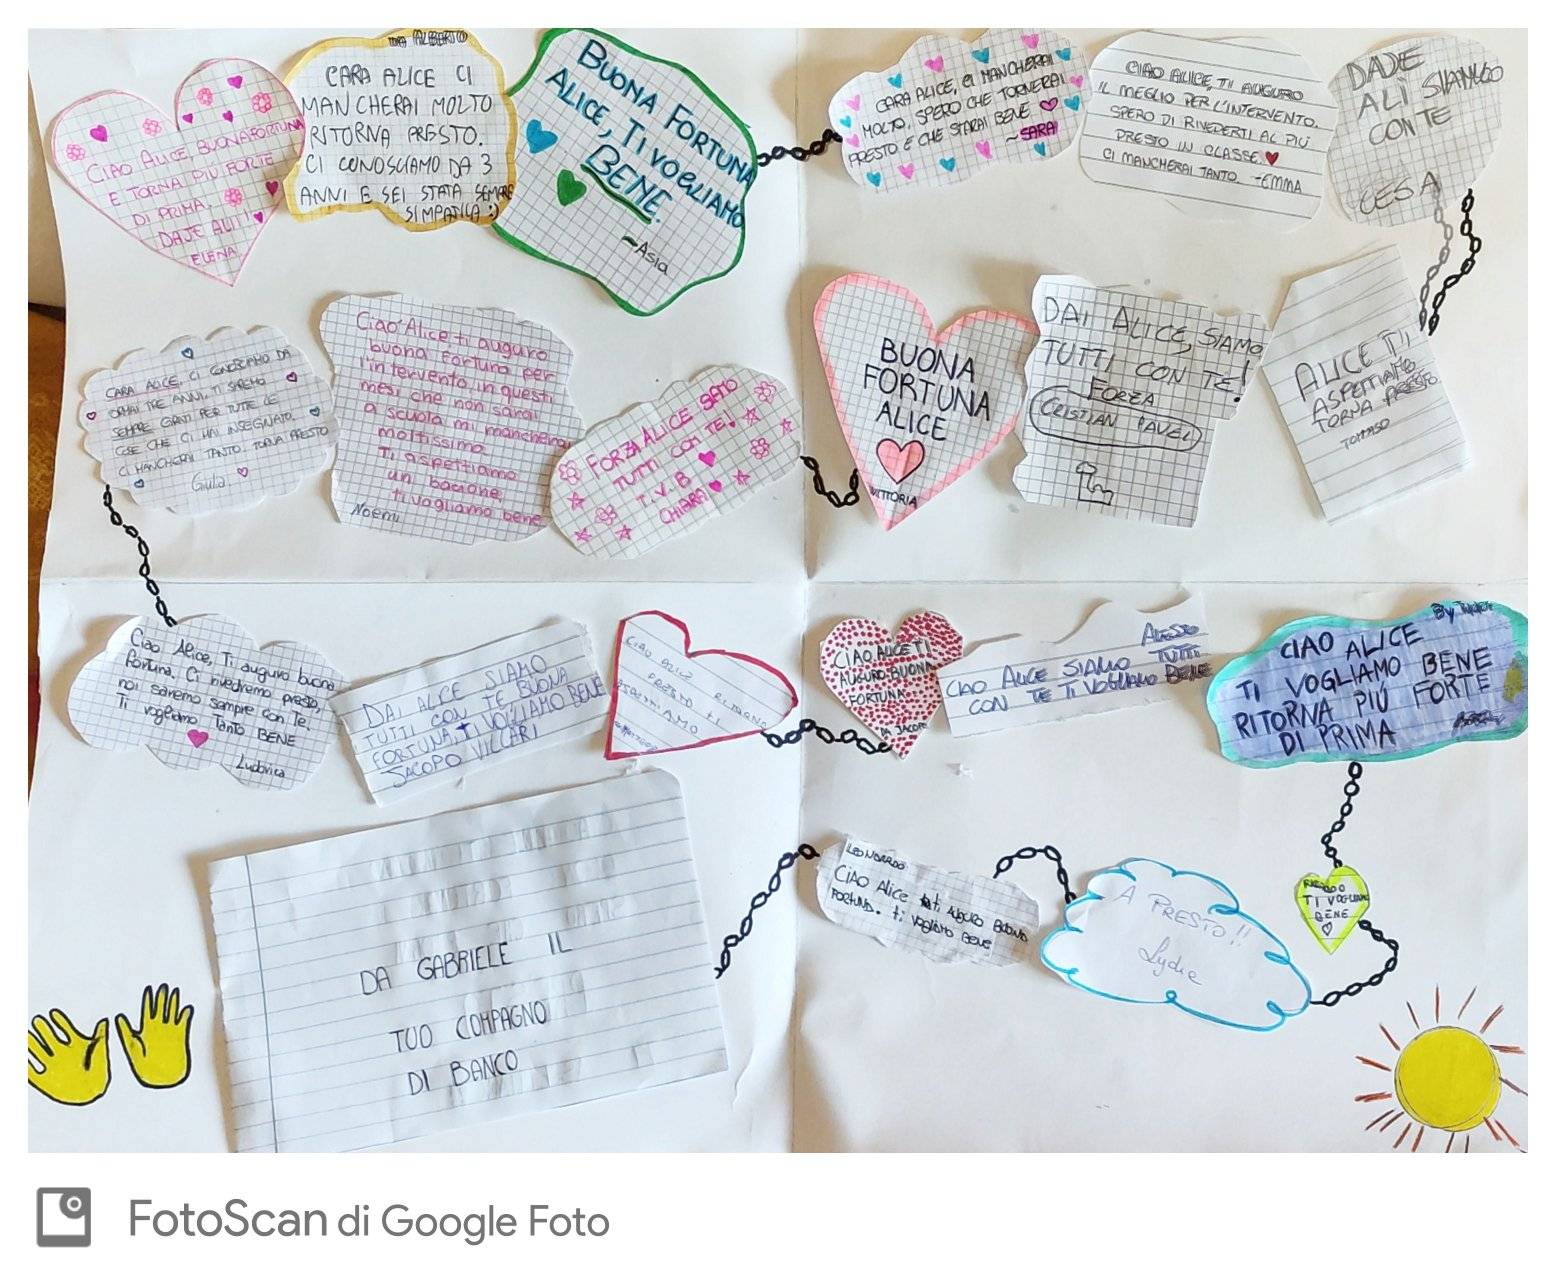 CIAO ALICE, BUONA FORTUNA
E TORNA PIÙ FORTE
DI PRIMA.
DAJE ALI!
ELENA
DA ALBERTO
CARA ALICE CI
MANCHERAI MOLTO
RITORNA PRESTO.
CI CONOSCIAMO DA 3
ANNI E SEI STATA SEMPRE
SIMPATICA :)
BUONA FORTUNA
ALICE, TI VOGLIAMO
BENE.
~Asia
CARA ALICE, CI MANCHERAI
MOLTO. SPERO CHE TORNERAI
PRESTO E CHE STARAI BENE
~SARA
CIAO ALICE, TI AUGURO
IL MEGLIO PER L'INTERVENTO.
SPERO DI RIVEDERTI AL PIÙ
PRESTO IN CLASSE.
CI MANCHERAI TANTO. -EMMA
DAJE
ALÌ SIAMO
CON TE
CESA
CARA ALICE, CI CONOSCIAMO DA
ORMAI TRE ANNI, TI SAREMO
SEMPRE GRATI PER TUTTE LE
COSE CHE CI HAI INSEGNATO.
CI MANCHERAI TANTO. TORNA PRESTO
Giulia
Ciao Alice ti auguro
buona fortuna per
l'intervento, in questi
mesi che non sarai
a scuola mi mancherai
moltissimo.
Ti aspettiamo
un bacione,
ti vogliamo bene
Noemi
FORZA ALICE SIAMO
TUTTI CON TE!
T.V.B
CHIARA
BUONA
FORTUNA
ALICE
VITTORIA
DAI ALICE, SIAMO
TUTTI CON TE!
FORZA
CRISTIAN PAVEL
ALICE TI
ASPETTIAMO
TORNA PRESTO
TOMMASO
Ciao Alice, Ti auguro buona
fortuna. Ci rivedremo presto,
noi saremo sempre con te.
Ti vogliamo tanto BENE
Ludovica
DAI ALICE SIAMO
TUTTI CON TE BUONA
FORTUNA TI VOGLIAMO BENE
JACOPO VILLARI
CIAO ALICE RITORNA
PRESTO TI
ASPETTIAMO
CIAO ALICE TI
AUGURO BUONA
FORTUNA
DA JACOPO
CIAO ALICE SIAMO TUTTI
CON TE TI VOGLIAMO BENE
By
CIAO ALICE
TI VOGLIAMO BENE
RITORNA PIÙ FORTE
DI PRIMA
DA GABRIELE IL
TUO COMPAGNO
DI BANCO
LEONARDO
CIAO Alice ti AUGURO BUONA
FORTUNA. ti vogliamo BENE
A PRESTO!!
Lydie
TI VOGLIAMO
BENE
FotoScan di Google Foto